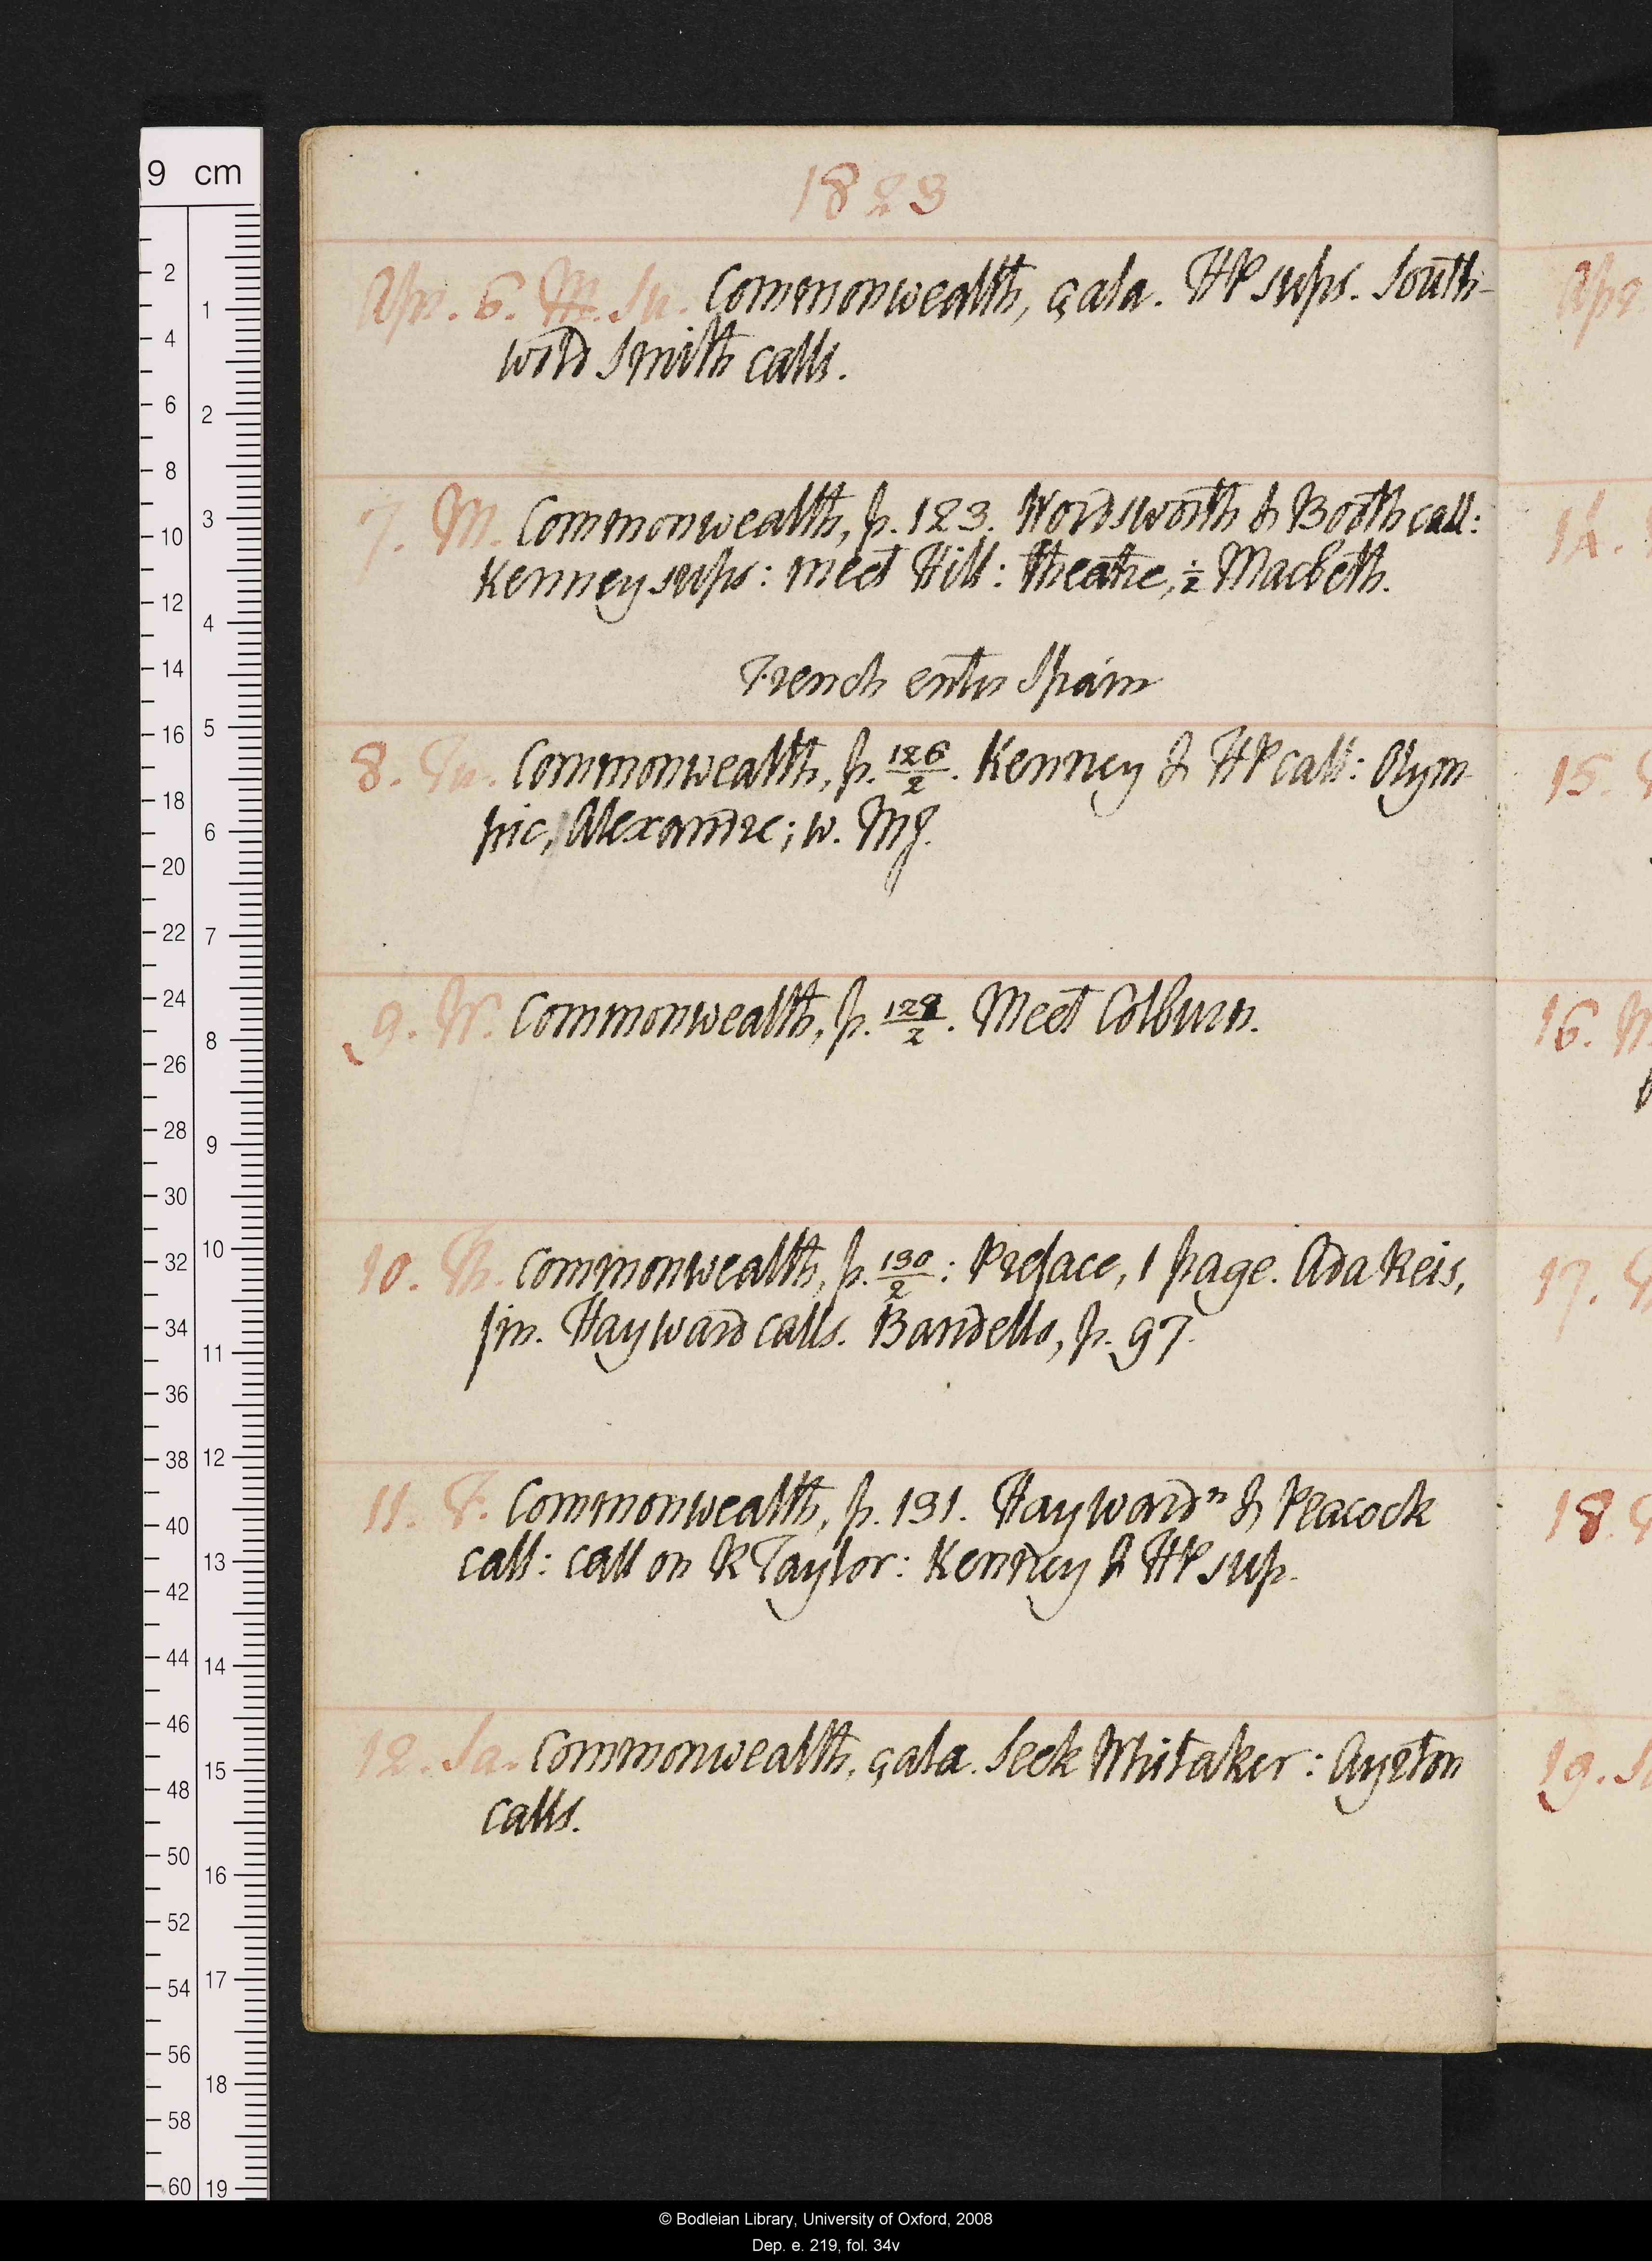 1823
Apr. 6. M. Su. Commonwealth, çala. HP sups. South-
wood Smith calls.
7. M. Commonwealth, p. 123. Wordsworth & Booth call:
Kenney sups: meet Hill: theatre, ½ Macbeth.
French enter Spain
8. Tu. Commonwealth, p. 126/2. Kenney & HP call: Olym-
pic, Alexandre; w. MJ.
9. W. Commonwealth, p. 128/2. Meet Colburn.
10. Th. Commonwealth, p. 130/2: Preface, 1 page. Ada Reis,
fin. Hayward calls. Bandello, p. 97.
11. F. Commonwealth, p. 131. Hayward n & Peacock
call: call on R Taylor: Kenney & HP sup.
12. Sa. Commonwealth, çala. Seek Whitaker: Ayrton
calls.
Apr.
14.
15.
16.
17.
18.
19.
9 cm
2 4 6 8 10 12 14 16 18 20 22 24 26 28 30 32 34 36 38 40 42 44 46 48 50 52 54 56 58 60
1 2 3 4 5 6 7 8 9 10 11 12 13 14 15 16 17 18 19
© Bodleian Library, University of Oxford, 2008
Dep. e. 219, fol. 34v